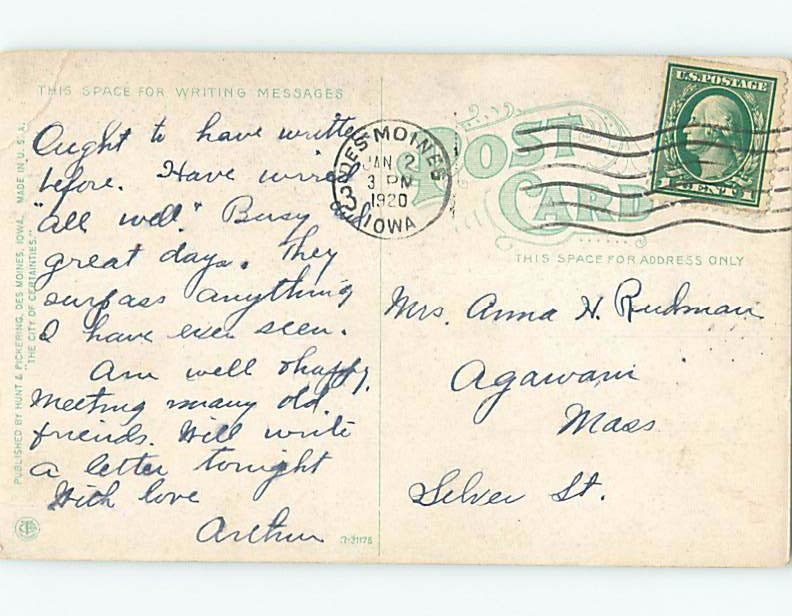 THIS SPACE FOR WRITING MESSAGES
Ought to have written
before. Have wired
"all well." Busy
great days. They
surpass anything
I have ever seen.
Am well & happy,
Meeting many old
friends. Will write
a letter tonight
With love
Arthur
PUBLISHED BY HUNT & PICKERING, DES MOINES, IOWA. MADE IN U.S.A.
"THE CITY OF CERTAINTIES."
R-21175
DES MOINES
JAN 2
3 PM
1920
IOWA
POST
CARD
U.S. POSTAGE
1 CENT 1
THIS SPACE FOR ADDRESS ONLY
Mrs. Anna H. Rudman
Agawam
Mass
Silver St.